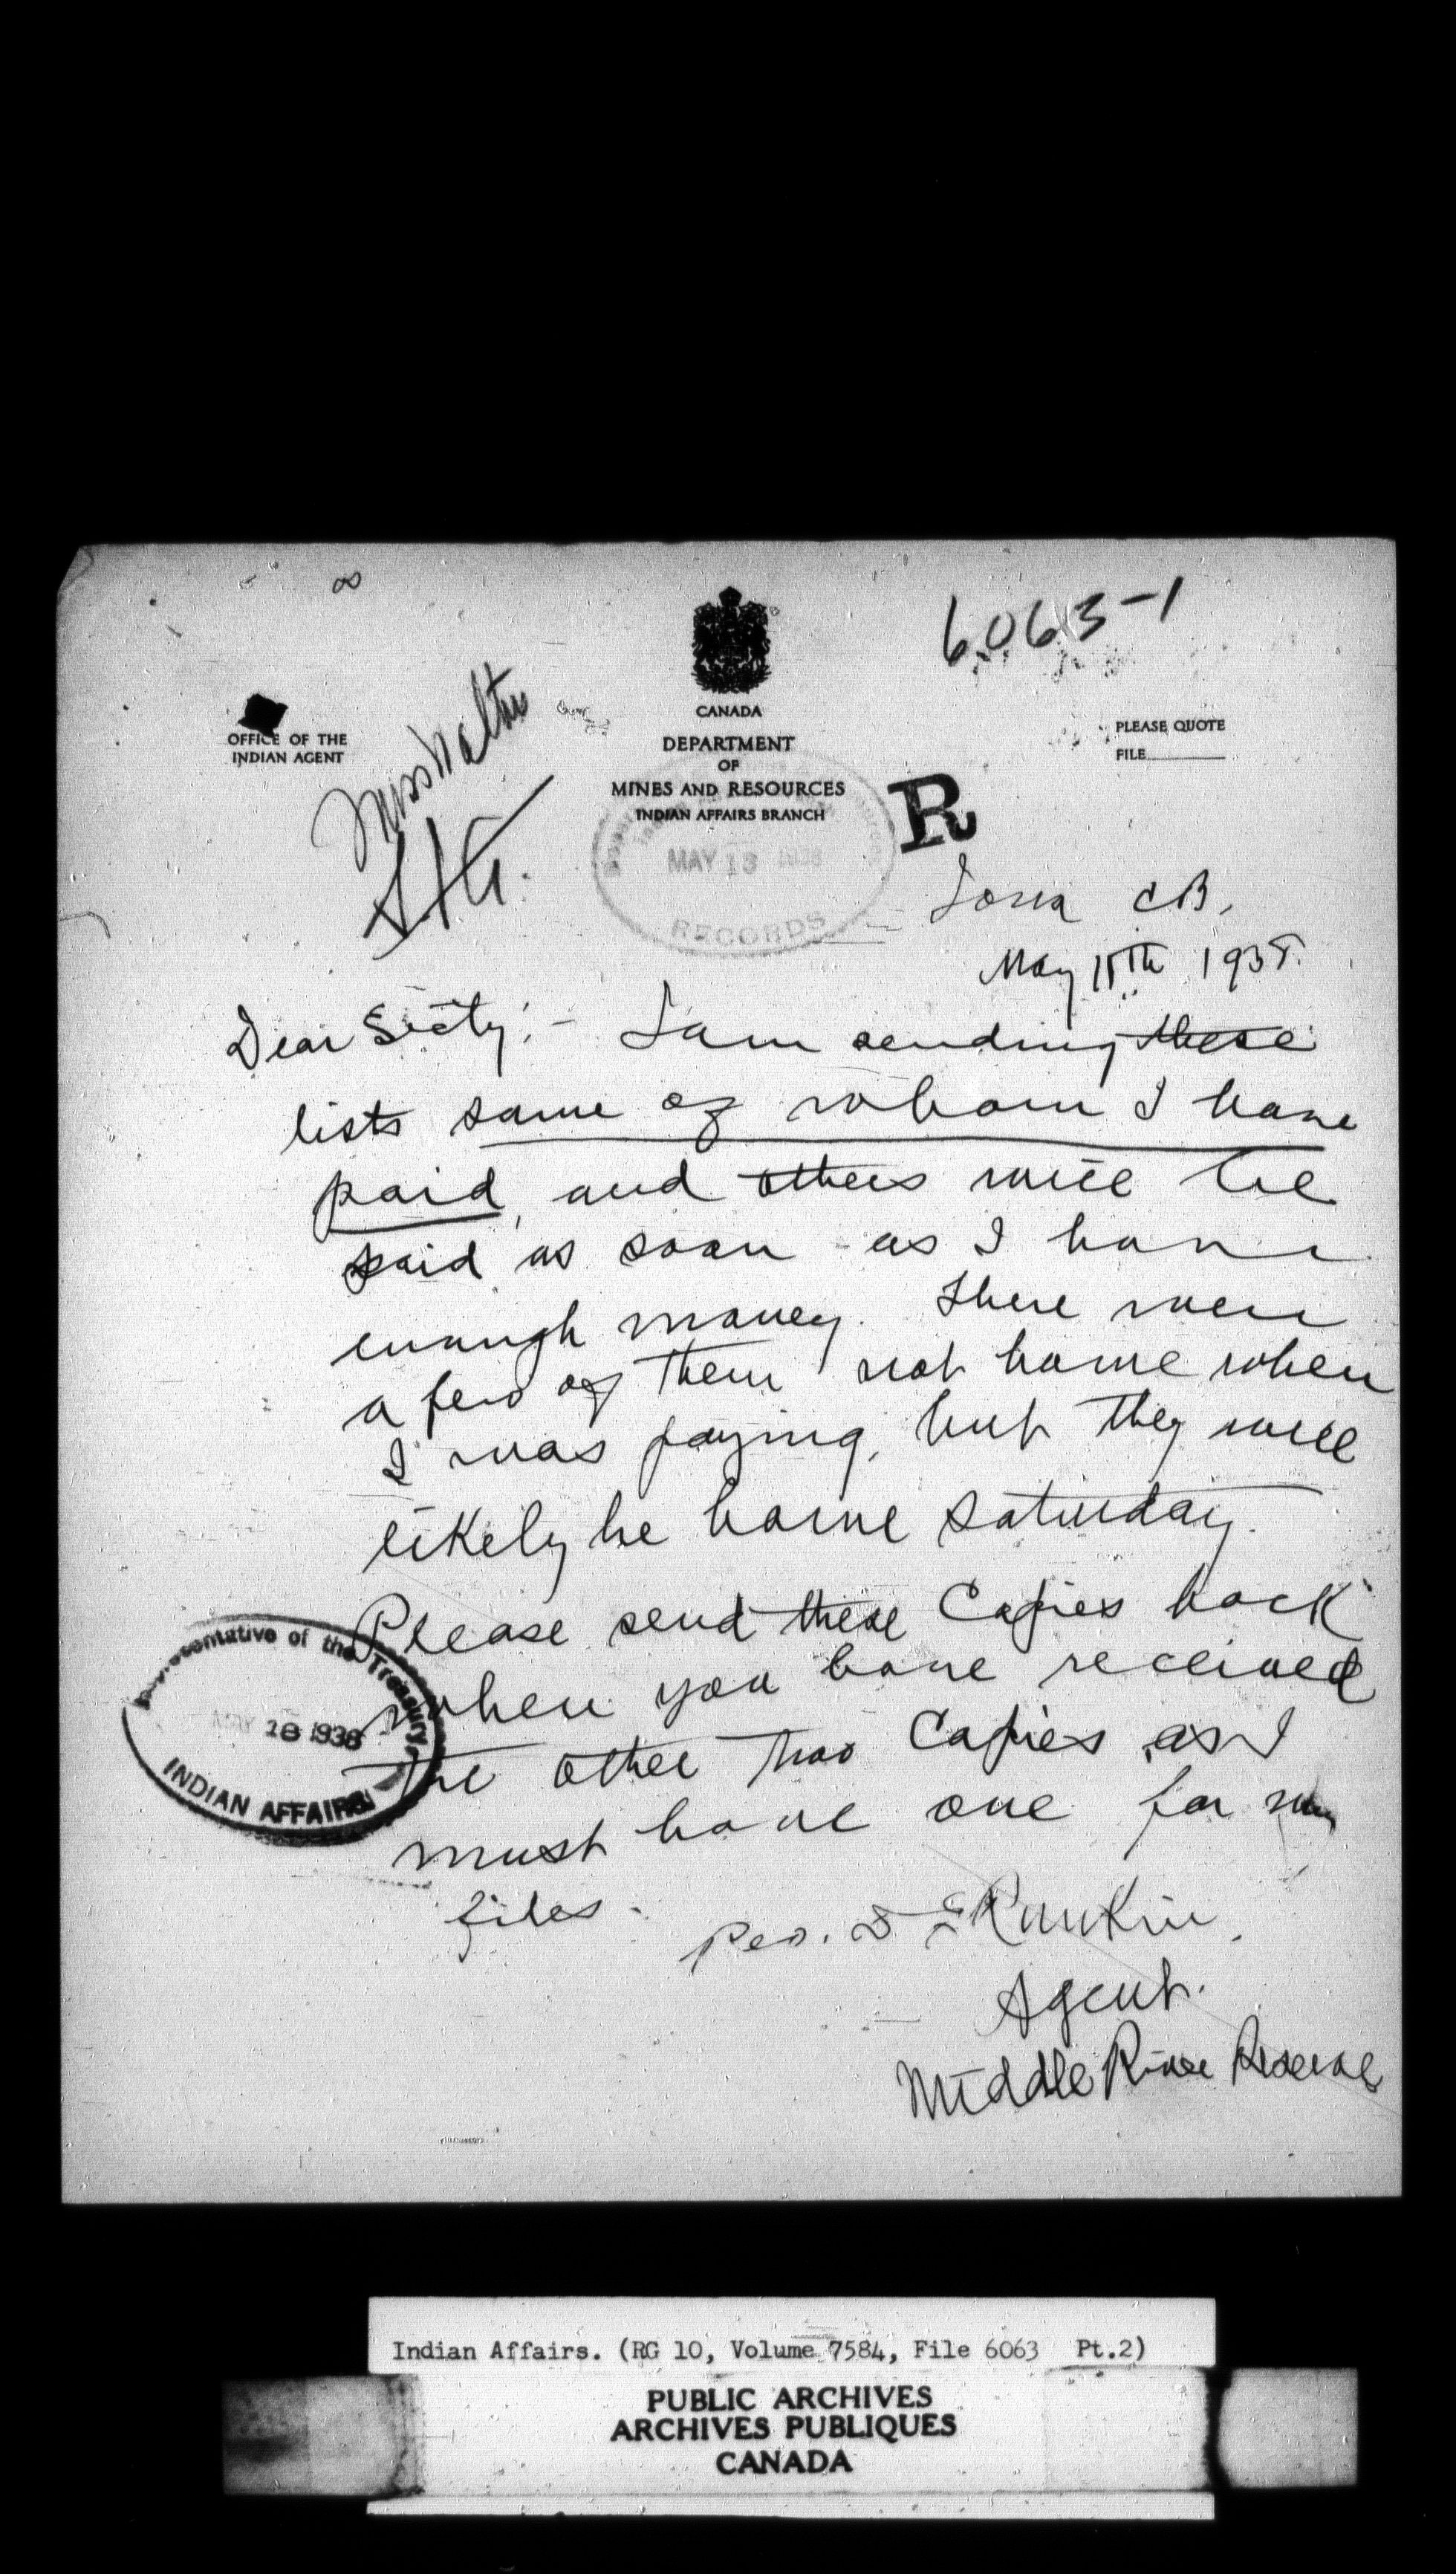 6063-1
OFFICE OF THE
INDIAN AGENT
CANADA
DEPARTMENT
OF
MINES AND RESOURCES
INDIAN AFFAIRS BRANCH
PLEASE QUOTE
FILE
Miss Walters
R
MAY 13 1938
RECORDS
Iona C.B.,
May 11th 1938.
Dear Secty:- I am sending these
lists some of whom I have
paid, and others will be
paid as soon as I have
enough money. There were
a few of them not home when
I was paying, but they will
likely be home Saturday.
Please send these Copies back
when you have received
the other two Copies as I
must have one for my
files.
Representative of the Treasury
MAY 18 1938
INDIAN AFFAIRS
Rankin,
Agent.
Middle River Reserve
Indian Affairs. (RG 10, Volume 7584, File 6063 Pt.2)
PUBLIC ARCHIVES
ARCHIVES PUBLIQUES
CANADA